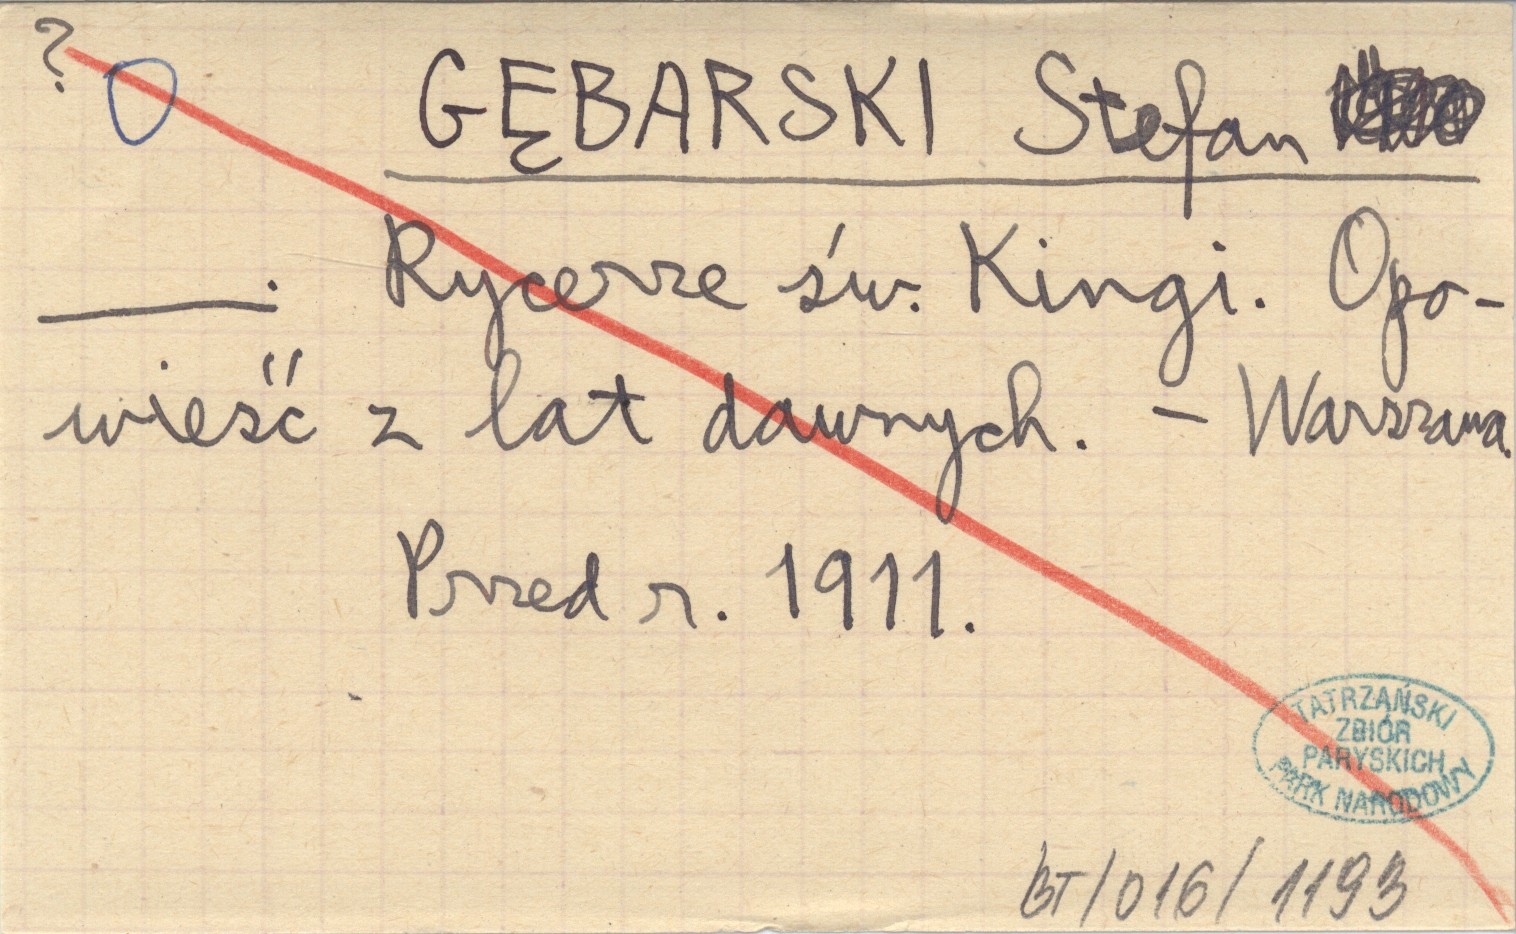 ?
GĘBARSKI Stefan
____. Rycerze św. Kingi. Opo-
wieść z lat dawnych. – Warszawa.
Przed r. 1911.
TATRZAŃSKI
ZBIÓR
PARYSKICH
PARK NARODOWY
BT/016/1193